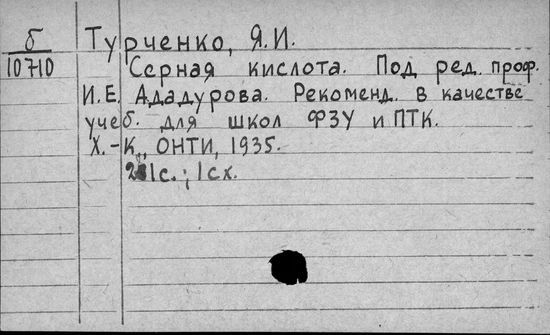 б
10710
Турченко, Я.И.
Серная кислота. Под ред. проф.
И.Е. Ададурова. Рекоменд. в качестве
учеб. для школ ФЗУ и ПТК.
Х.-К., ОНТИ, 1935.
1 сх.